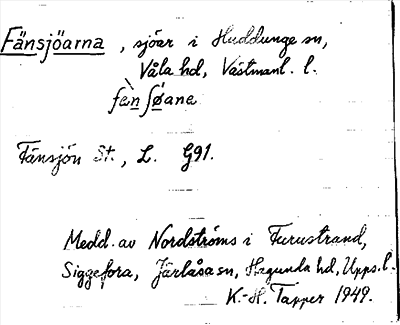 Fänsjöarna, sjöar i Huddunge sn,
Våla hd, Västmanl. l.
fæ̀n ʃø̀ana
Fänsjön St., L. G91.
Medd. av Nordströms i Furustrand,
Siggefora, Järlåsa sn, Hagunda hd, Upps. l.
K.-H. Tapper 1949.